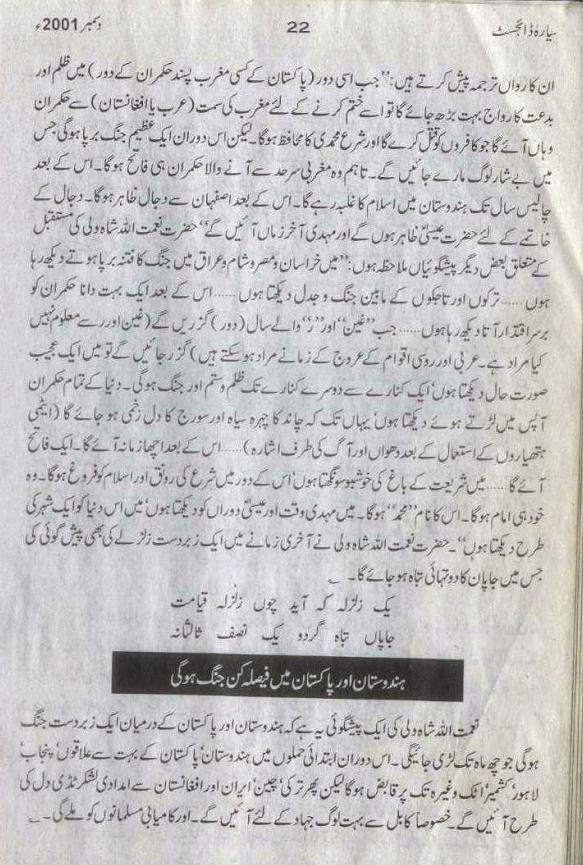 سیارہ ڈائجسٹ 22 دسمبر 2001ء
ان کا رواں ترجمہ پیش کرتے ہیں:”جب اسی دور (پاکستان کے کسی مغرب پسند حکمران کے دور) میں ظلم اور
بدعت کا رواج بہت بڑھ جائے گا تو اسے ختم کرنے کے لئے مغرب کی سمت (عرب یا افغانستان) سے حکمران
وہاں آئے گا جو کافروں کو قتل کرے گا اور شرع محمدی کا محافظ ہوگا۔ لیکن اس دوران ایک عظیم جنگ برپا ہوگی جس
میں بے شمار لوگ مارے جائیں گے۔ تاہم وہ مغربی سرحد سے آنے والا حکمران ہی فاتح ہوگا۔ اس کے بعد
چالیس سال تک ہندوستان میں اسلام کا غلبہ رہے گا۔ اس کے بعد اصفہان سے دجال ظاہر ہوگا۔ دجال کے
خاتمے کے لئے حضرت عیسیٰؑ ظاہر ہوں گے اور مہدی آخر زماں آئیں گے“ حضرت نعمت اللہ شاہ ولی کی مستقبل
کے متعلق بعض دیگر پیشگوئیاں ملاحظہ ہوں:”میں خراسان و مصر و شام و عراق میں جنگ کا فتنہ برپا ہوتے دیکھ رہا
ہوں ...... ترکوں اور تاجکوں کے مابین جنگ و جدل دیکھتا ہوں ...... اس کے بعد ایک بہت دانا حکمران کو
برسر اقتدار آتا دیکھ رہا ہوں...... جب ”غین“ اور ”ر“ والے سال (دور) گزریں گے (غین اور رے سے معلوم نہیں
کیا مراد ہے۔ عربی اور روسی اقوام کے عروج کے زمانے مراد ہو سکتے ہیں) گزر جائیں گے تو میں ایک عجیب
صورت حال دیکھتا ہوں‘ ایک کنارے سے دوسرے کنارے تک ظلم و ستم اور جنگ ہوگی۔ دنیا کے تمام حکمران
آپس میں لڑتے ہوئے دیکھتا ہوں‘ یہاں تک کہ چاند کا چہرہ سیاہ اور سورج کا دل زخمی ہو جائے گا (ایٹمی
ہتھیاروں کے استعمال کے بعد دھواں اور آگ کی طرف اشارہ)..... اس کے بعد اچھا زمانہ آئے گا۔ ایک فاتح
آئے گا..... میں شریعت کے باغ کی خوشبو سونگھتا ہوں‘ اس کے دور میں شرع کی رونق اور اسلام کو فروغ ہوگا۔ وہ
خود ہی امام ہوگا۔ اس کا نام ”محمدؐ“ ہوگا۔ میں مہدی وقت اور عیسیٰؑ دوراں کو دیکھتا ہوں‘ میں اس دنیا کو ایک شہر کی
طرح دیکھتا ہوں“۔ حضرت نعمت اللہ شاہ ولی نے آخری زمانے میں ایک زبردست زلزلے کی بھی پیش گوئی کی
جس میں جاپان کا دو تہائی تباہ ہو جائے گا۔ ؂
یک زلزلہ کہ آید چوں زلزلہ قیامت
جاپاں تباہ گردو یک نصف ثالثانہ
ہندوستان اور پاکستان میں فیصلہ کن جنگ ہوگی
نعمت اللہ شاہ ولی کی ایک پیشگوئی یہ ہے کہ ہندوستان اور پاکستان کے درمیان ایک زبردست جنگ
ہوگی جو چھ ماہ تک لڑی جائیگی۔ اس دوران ابتدائی حملوں میں ہندوستان‘ پاکستان کے بہت سے علاقوں‘ پنجاب‘
لاہور‘ کشمیر‘ اٹک وغیرہ تک پر قابض ہوگا لیکن پھر ترکی‘ چین‘ ایران اور افغانستان سے امدادی لشکر ٹڈی دل کی
طرح آئیں گے۔ خصوصاً کابل سے بہت لوگ جہاد کے لئے آئیں گے۔ اور کامیابی مسلمانوں کو ملے گی۔ ؂